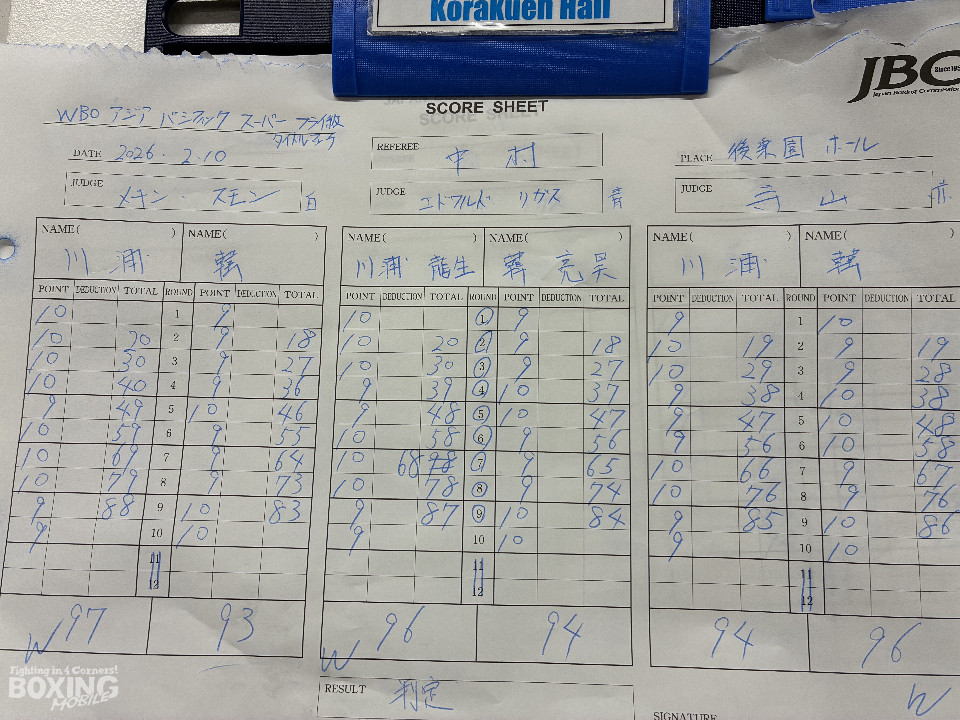 Korakuen Hall
JBC
Since 195
Japan Boxing Commission
SCORE SHEET
WBO アジア パシフィック スーパー フライ級
タイトルマッチ
DATE 2026.2.10
REFEREE 中村
PLACE 後楽園 ホール
JUDGE メキン・スモン 白
JUDGE エドワルド リガス 青
JUDGE 寺山 赤
NAME( ) NAME( ) NAME( ) NAME( ) NAME( ) NAME( )
川浦 韓 川浦 龍生 韓 亮昊 川浦 韓
POINT DEDUCTION TOTAL ROUND POINT DEDUCTION TOTAL POINT DEDUCTION TOTAL ROUND POINT DEDUCTION TOTAL POINT DEDUCTION TOTAL ROUND POINT DEDUCTION TOTAL
10 1 9 10 1 9 9 1 10
10 20 2 9 18 10 20 2 9 18 10 19 2 9 19
10 30 3 9 27 10 30 3 9 27 10 29 3 9 28
10 40 4 9 36 9 39 4 10 37 9 38 4 10 38
9 49 5 10 46 9 48 5 10 47 9 47 5 10 48
10 59 6 9 55 10 58 6 9 56 9 56 6 10 58
10 69 7 9 64 10 68 7 9 65 10 66 7 9 67
10 79 8 9 73 10 78 8 9 74 10 76 8 9 76
9 88 9 10 83 9 87 9 10 84 9 85 9 10 86
9 10 10 9 10 10 9 10 10
11 11 11
12 12 12
W 97 93 W 96 94 94 96 W
RESULT 判定
SIGNATURE
Fighting in 4 Corners!
BOXING
MOBILE